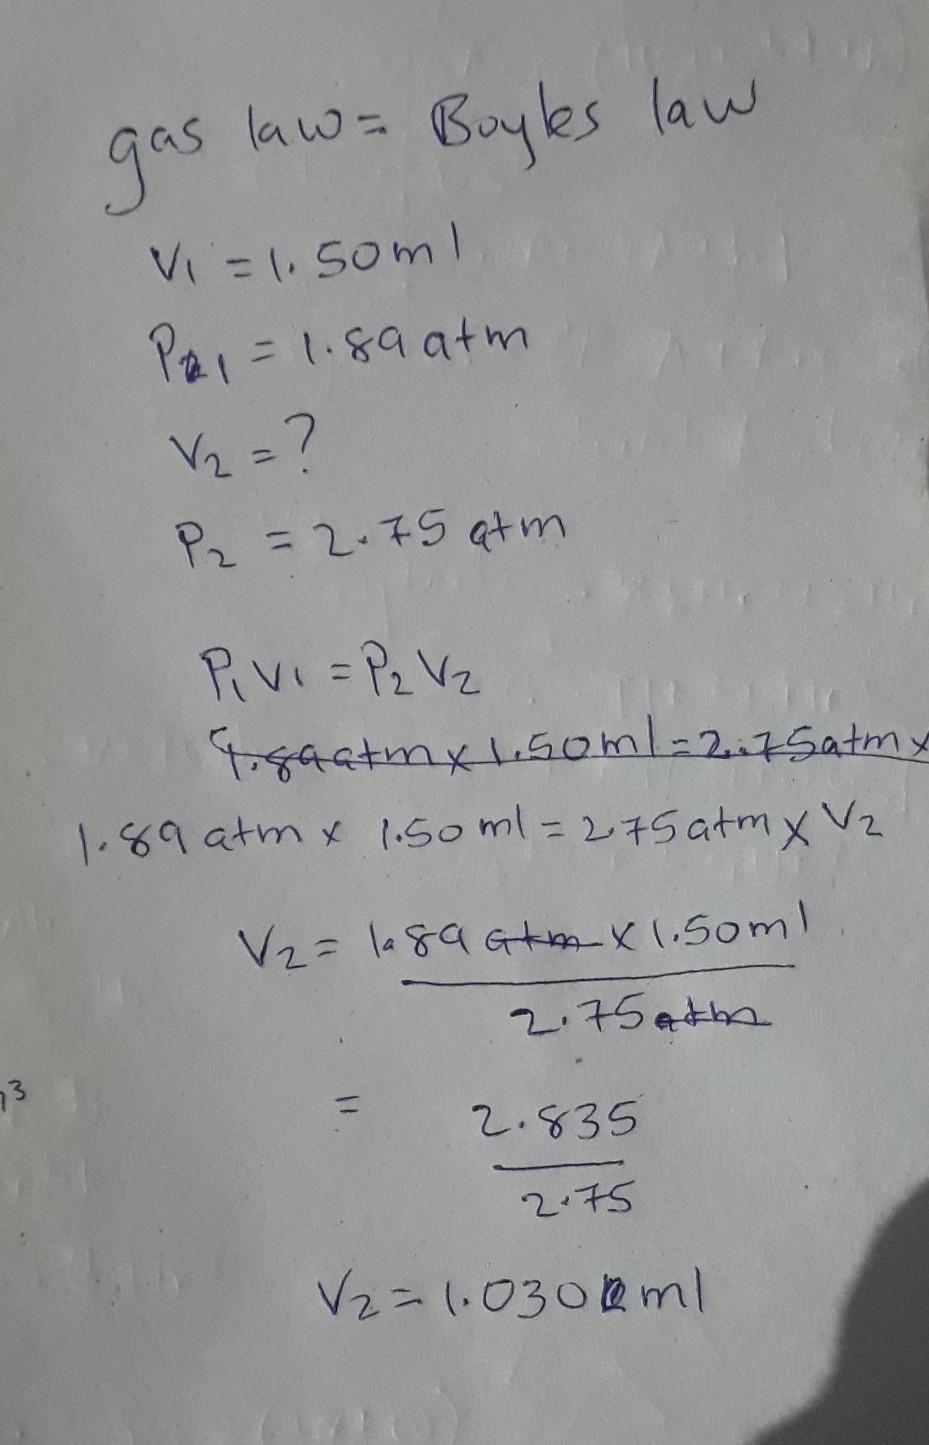 gas law = Boyles law
V1 = 1.50ml
P1 = 1.89 atm
V2 = ?
P2 = 2.75 atm
P1 V1 = P2 V2
1.89atm x 1.50ml = 2.75atm x
1.89 atm x 1.50 ml = 2.75 atm x V2
V2 = 1.89 atm x 1.50ml
2.75 atm
3
= 2.835
2.75
V2 = 1.030 ml